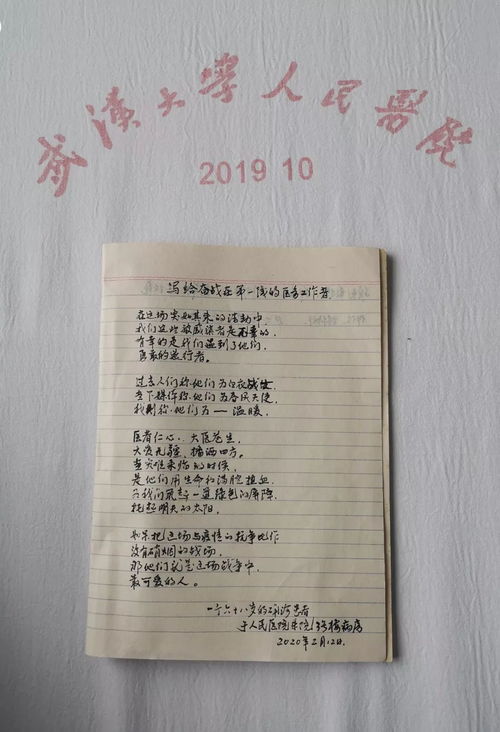 武汉大学人民医院
2019 10
写给奋战在第一线的医务工作者
在这场突如其来的活动中
我们这些被感染者是不幸的
有幸的是我们遇到了他们,
勇敢的逆行者。
过去人们称他们为白衣战士
当下媒体称他们为春风天使
我则称他们为一温暖,
医者仁心,大医苍生
大爱无疆,播洒四方。
当灾难来临的时候,
是他们用生命和满腔热血
为我们筑起一道绿色的屏障
托起明天的太阳,
如果把这场与疫情的抗争比作
没有硝烟的战场,
那他们就是这场战争中,
最可爱的人。
一个六十八岁的患者
于人民医院东院病房
2020年2月12日